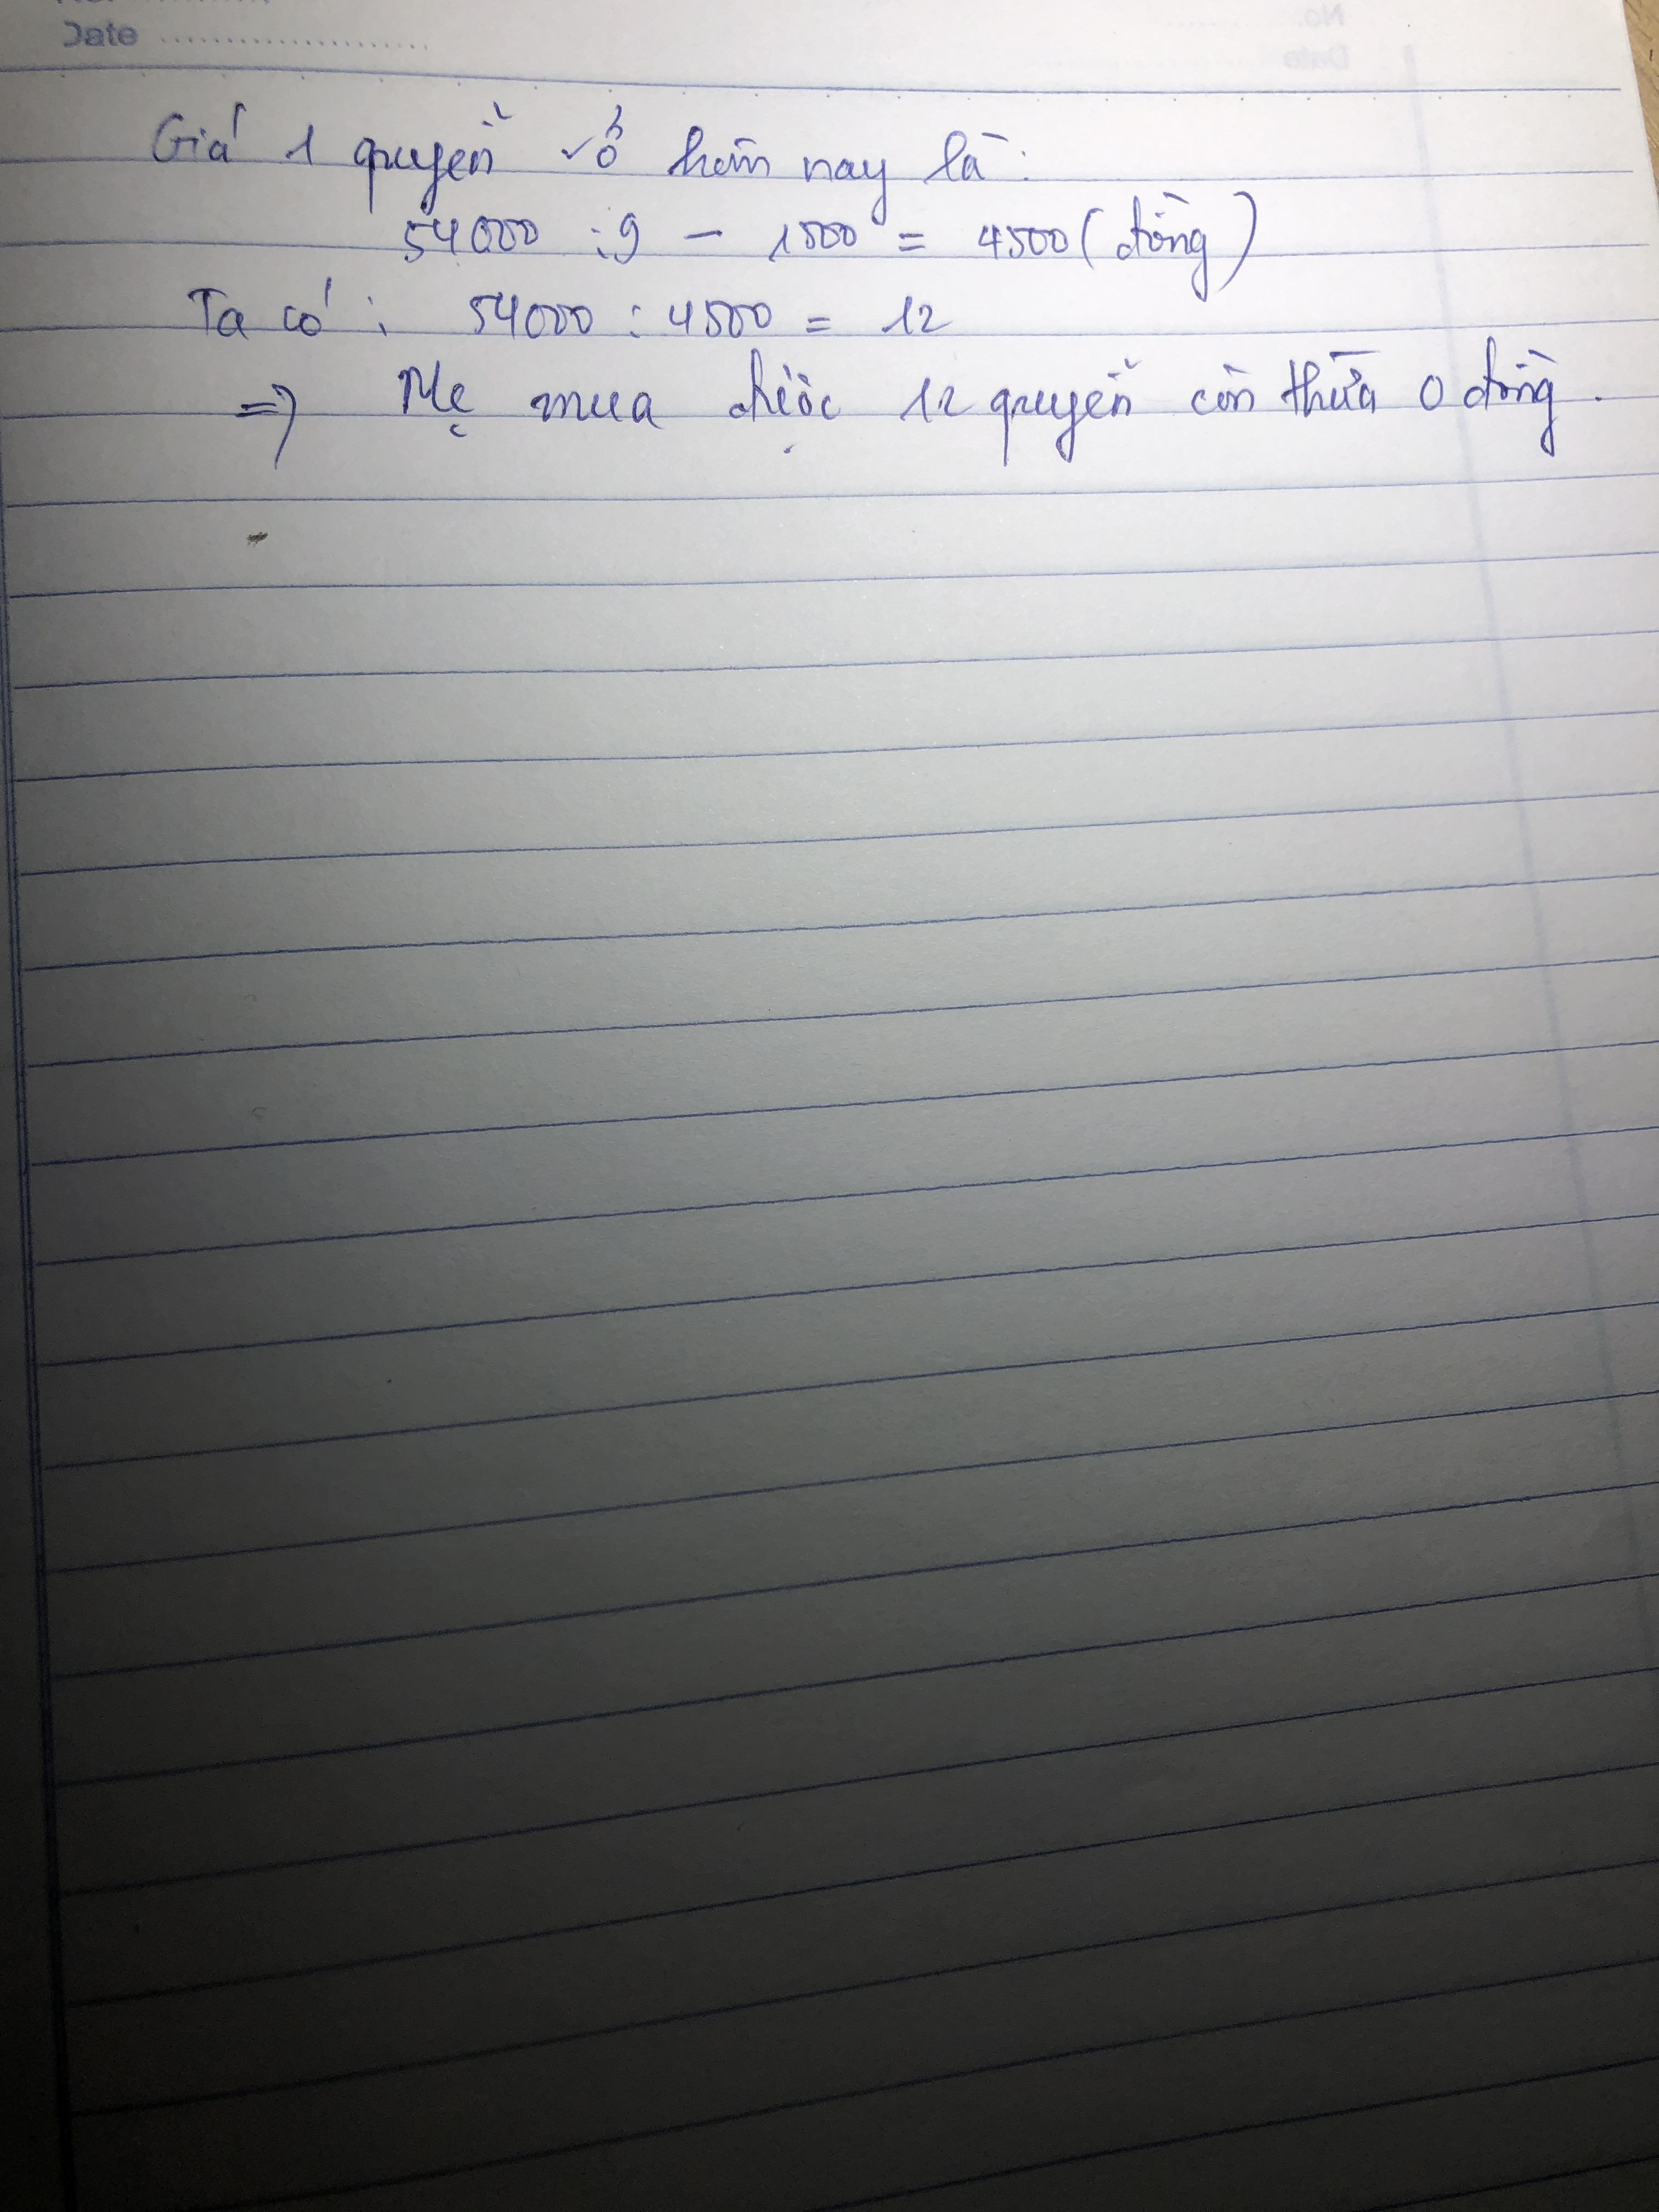 Date
Giá 1 quyển vở hôm nay là:
54000 : 9 - 1500 = 4500 (đồng)
Ta có: 54000 : 4500 = 12
=> Mẹ mua được 12 quyển còn thừa 0 đồng.